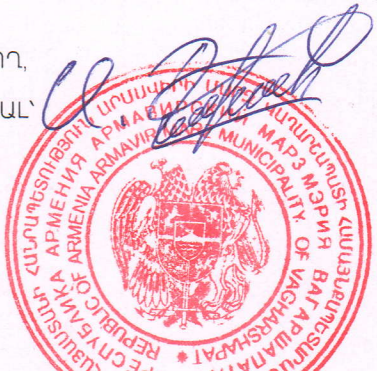 Ղ,
ԱԼ՝
ՀԱՅԱՍՏԱՆԻ ՀԱՆՐԱՊԵՏՈՒԹՅՈՒՆ ԱՐՄԱՎԻՐԻ ՄԱՐԶ
ՎԱՂԱՐՇԱՊԱՏԻ ՀԱՄԱՅՆՔԱՊԵՏԱՐԱՆ
РЕСПУБЛИКА АРМЕНИЯ АРМАВИРСКИЙ МАРЗ МЭРИЯ ВАГАРШАПАТА
REPUBLIC OF ARMENIA ARMAVIR MARZ MUNICIPALITY OF VAGHARSHAPAT